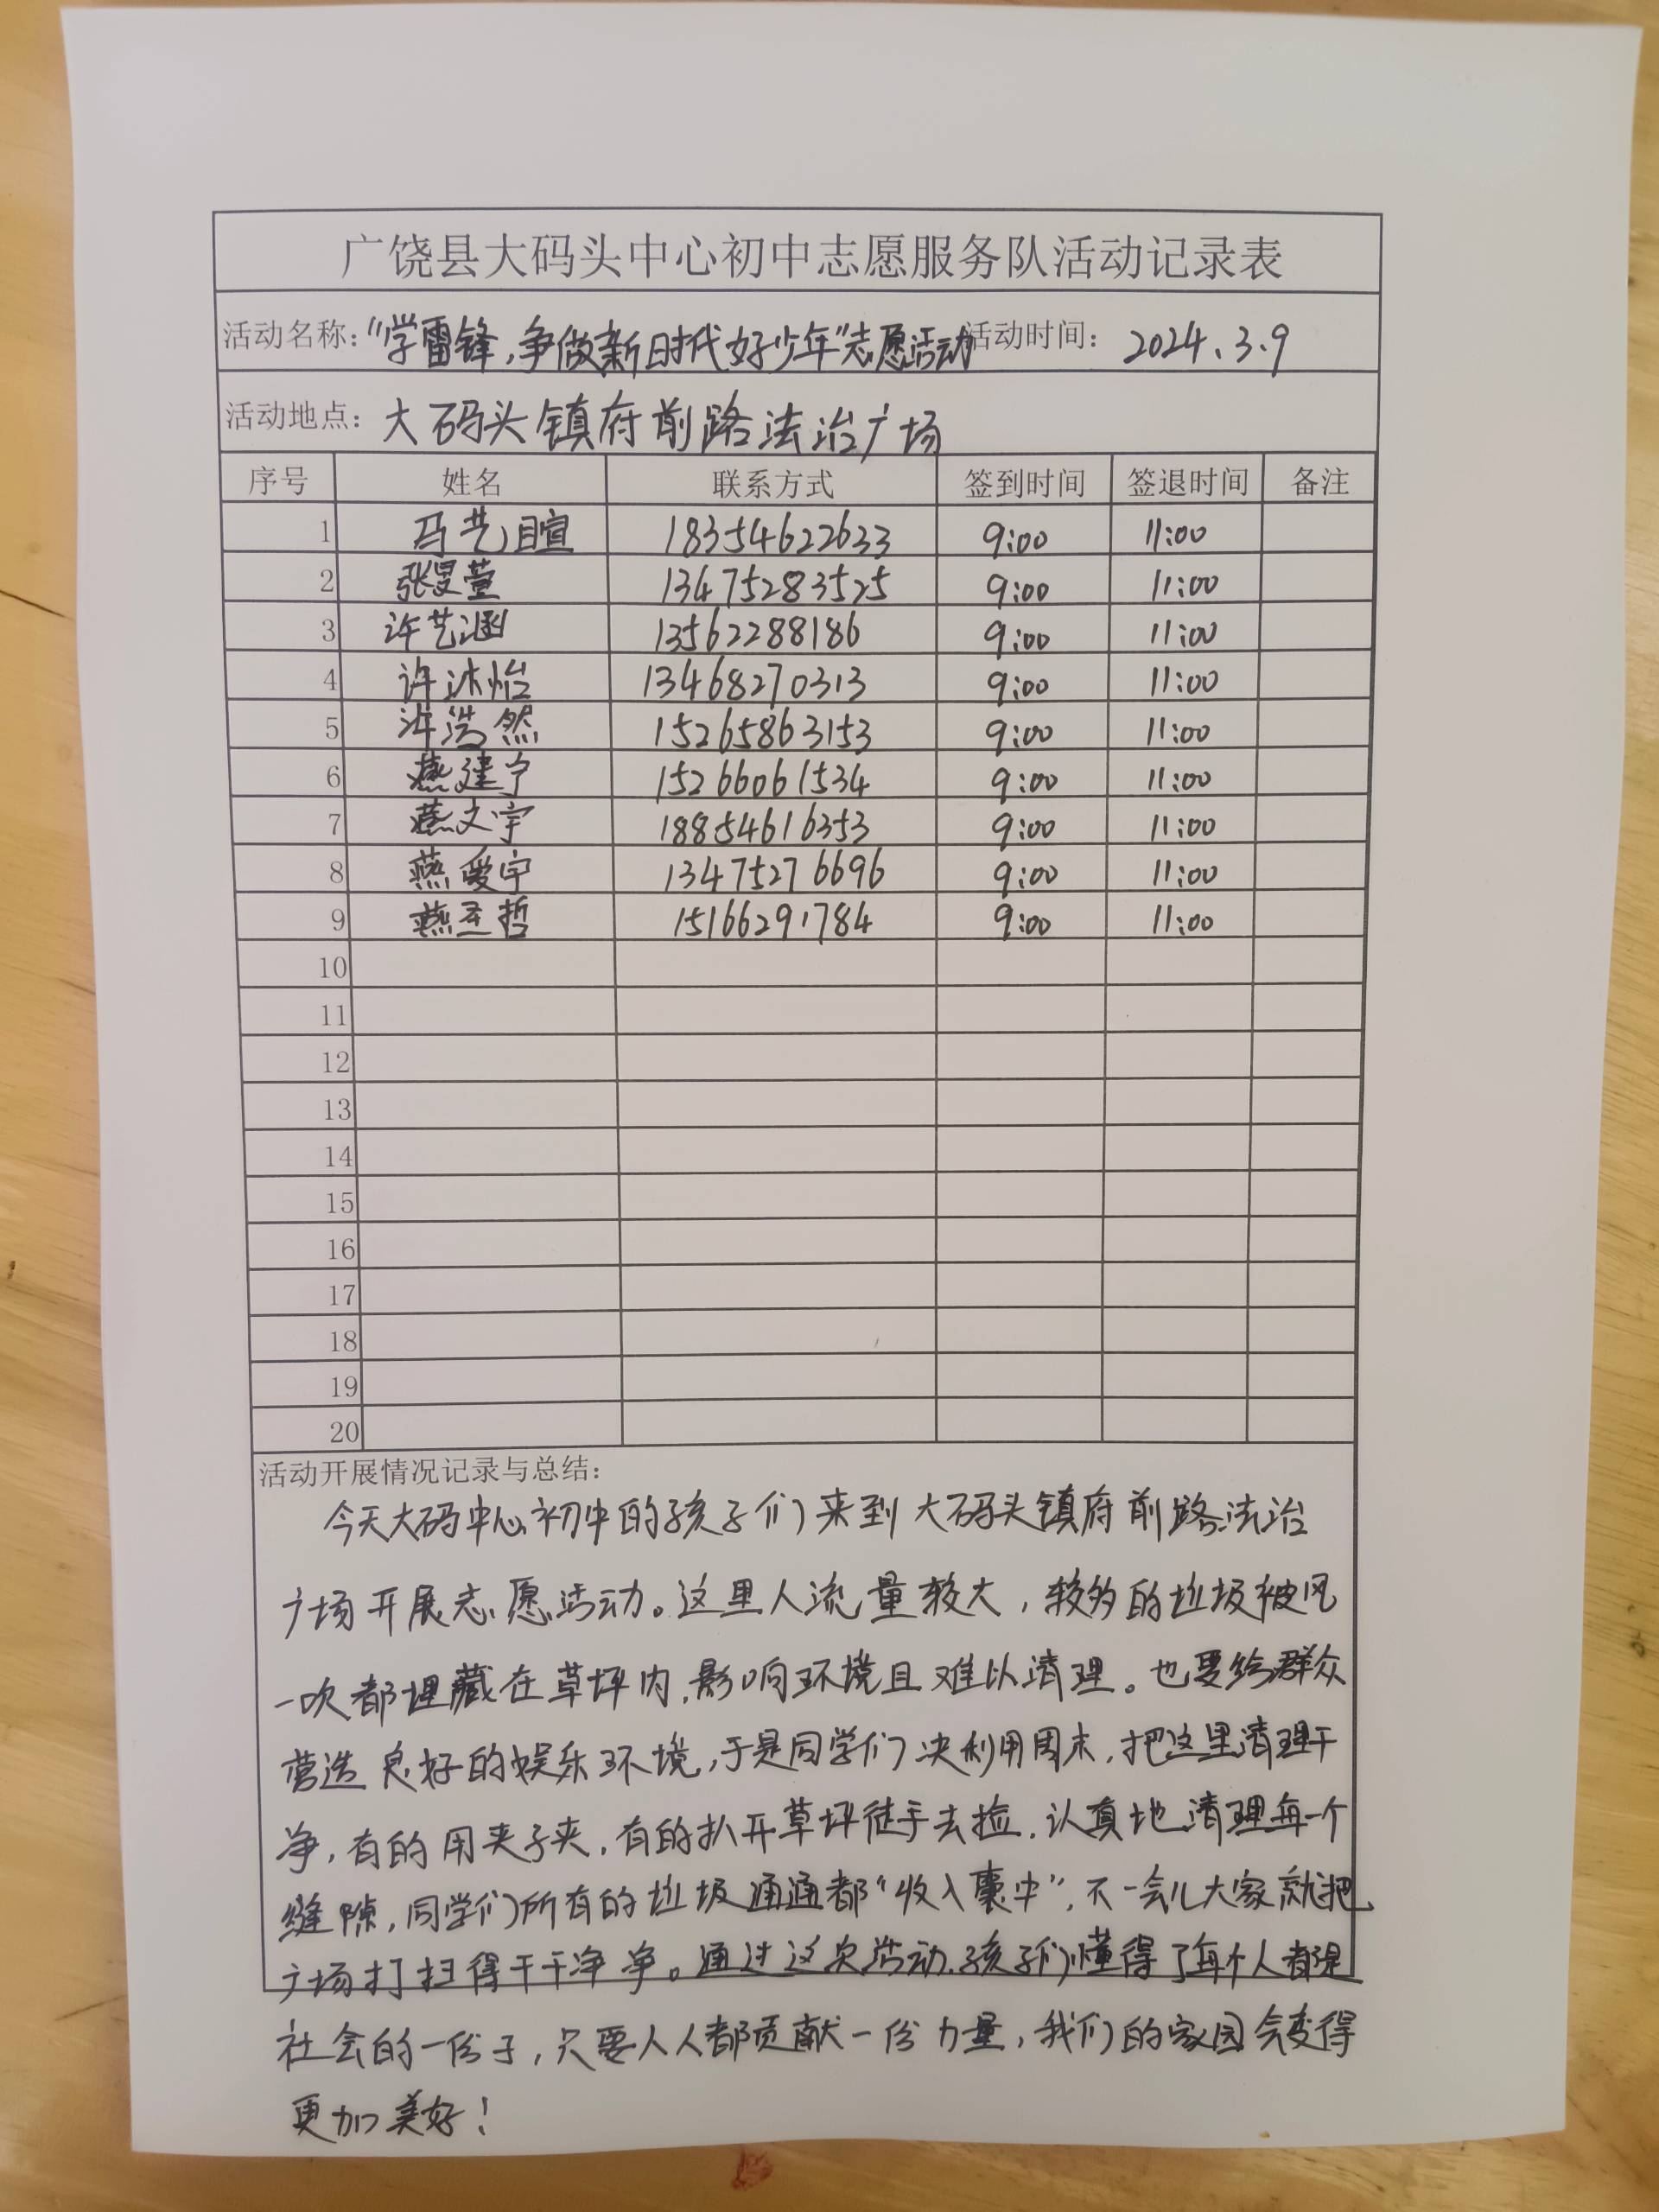 广饶县大码头中心初中志愿服务队活动记录表
活动名称：“学雷锋，争做新时代好少年”志愿活动 活动时间： 2024.3.9
活动地点：大码头镇府前路法治广场
序号 姓名 联系方式 签到时间 签退时间 备注
1 马艺暄 18354622633 9:00 11:00
2 张旻萱 13475283525 9:00 11:00
3 许艺涵 13562288186 9:00 11:00
4 许沐怡 13468270313 9:00 11:00
5 许浩然 15265863153 9:00 11:00
6 燕建宁 15266061534 9:00 11:00
7 燕文宇 18854616353 9:00 11:00
8 燕爱宇 13475276696 9:00 11:00
9 燕圣哲 15166291784 9:00 11:00
10
11
12
13
14
15
16
17
18
19
20
活动开展情况记录与总结：
今天大码中心初中的孩子们来到大码头镇府前路法治
广场开展志愿活动。这里人流量较大，较多的垃圾被风
一吹都埋藏在草坪内，影响环境且难以清理。也要给群众
营造良好的娱乐环境，于是同学们决利用周末，把这里清理干
净，有的用夹子夹，有的扒开草坪徒手去捡，认真地清理每一个
缝隙，同学们所有的垃圾通通都“收入囊中”，不一会儿大家就把
广场打扫得干干净净。通过这次活动，孩子们懂得了每个人都是
社会的一份子，只要人人都贡献一份力量，我们的家园会变得
更加美好！